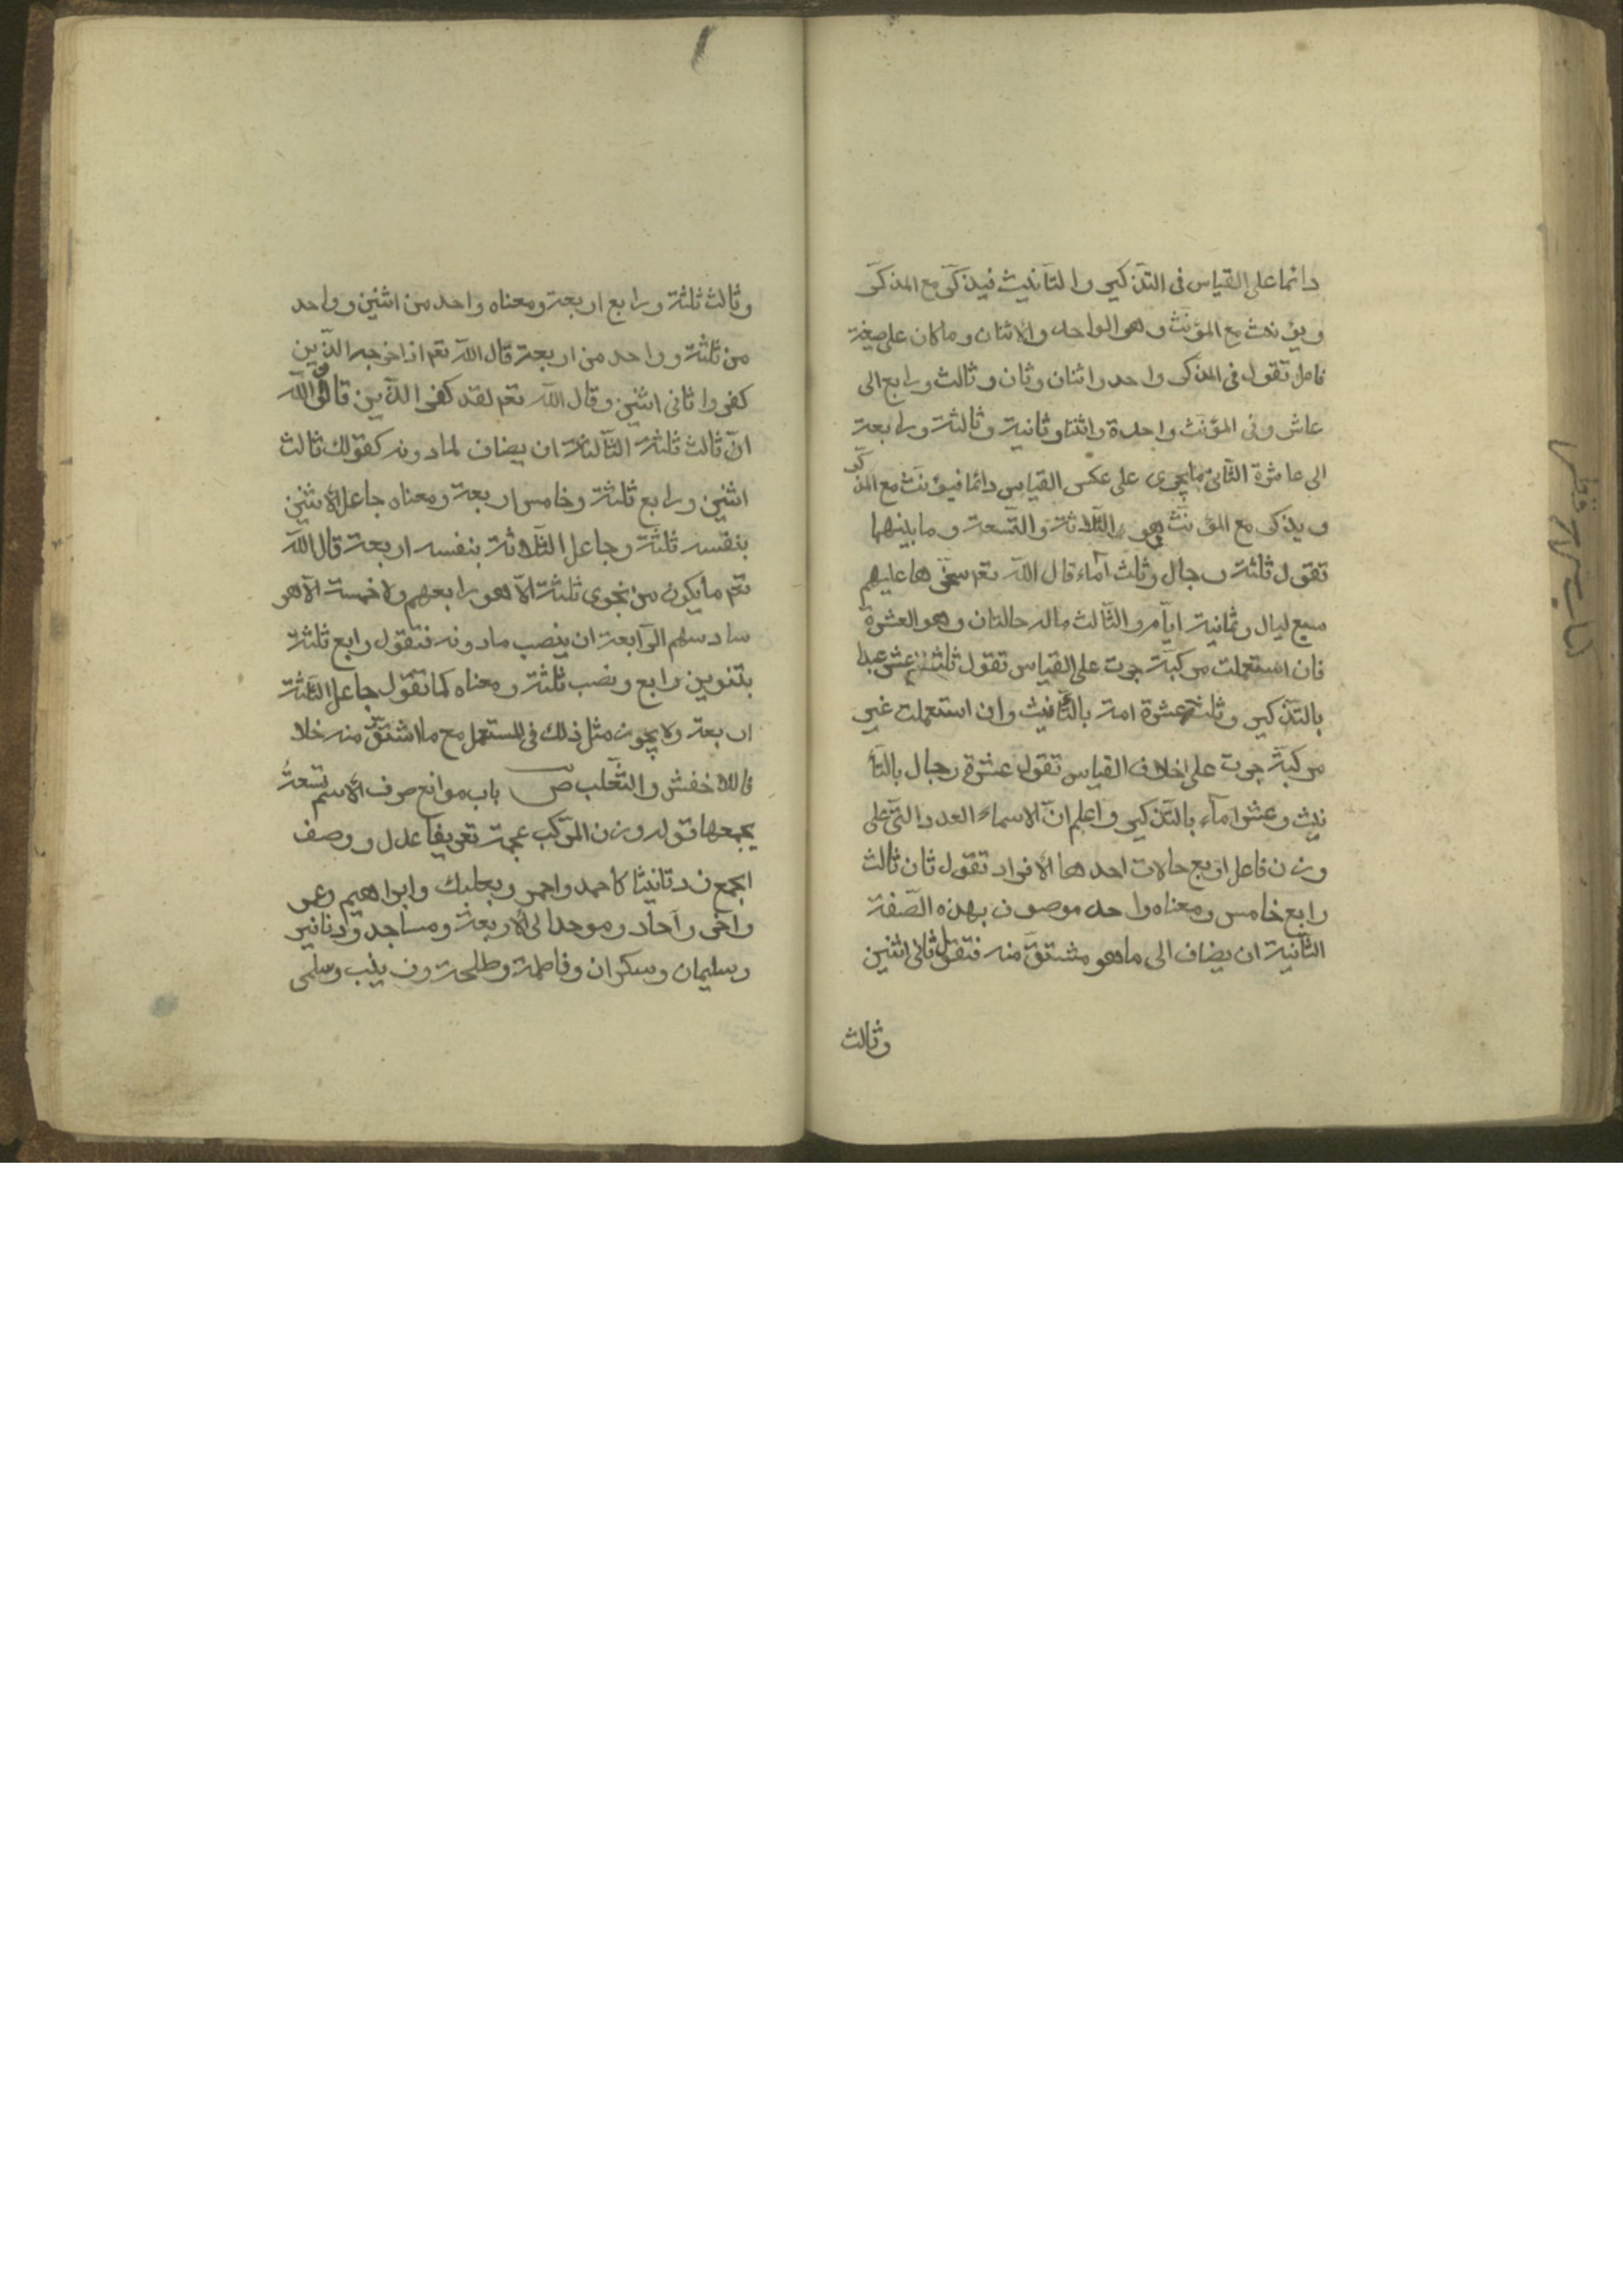 دائما على القياس فى التذكير والتأنيث فيذكّر مع المذكّر
ويؤنث مع المؤنّث وهو الواحد والاثنان وما كان على صيغة
فاعل تقول فى المذكر واحد واثنان وثان وثالث ورابع الى
عاشر وفى المؤنّث واحدة واثنتا وثانية وثالثة ورابعة
الى عاشرة الثّانى ما يجرى على عكس القياس دائما فيؤنّث مع المذكّر
ويذكر مع المؤنّث وهو الثّلاثة والتّسعة وما بينهما
تقول ثلثة رجال وثلث آماء قال اللّه تعم سخّرها عليهم
سبع ليال وثمانية ايّام والثّالث ماله حالتان وهو العشرة
فان استعملت مركّبة جرت على القياس تقول ثلثة عشر عبدا
بالتّذكير وثلث عشرة امة بالتّأنيث وان استعملت غير
مركّبة جرت على خلاف القياس تقول عشرة رجال بالتّأ
نيث وعشر امآء بالتّذكير واعلم انّ الاسماء العدد التى على
وزن فاعل اربع حالات احدها الافراد تقول ثان ثالث
رابع خامس ومعناه واحد موصوف بهذه الصّفة
الثّانية ان يضاف الى ما هو مشتقّ منه فتقول ثانى اثنين
وثالث
وثالث ثلثة ورابع اربعة ومعناه واحد من اثنين وواحد
من ثلثة وواحد من اربعة قال اللّه تعم اذ اخرجه الّذين
كفروا ثانى اثنين وقال اللّه تعم لقد كفر الّذين قالوا
انّ اللّه ثالث ثلثة الثّالثة ان يضاف لما دونه كقولك ثالث
اثنين ورابع ثلثة وخامس اربعة ومعناه جاعل الاثنين
بنفسه ثلثة وجاعل الثّلاثة بنفسه اربعة قال اللّه
تعم ما يكون من نجوى ثلثة الّا هو رابعهم ولا خمسة الّا هو
سادسهم الرّابعة ان ينصب ما دونه فتقول رابع ثلثة
بتنوين رابع ونصب ثلثة ومعناه كما تقول جاعل الثّلثة
اربعة ولا يجوز مثل ذلك فى المستعمل مع ما اشتقّ منه خلا
فا للاخفش والثّعلب ص باب موانع صرف الاسم تسعة
يجمعها قوله وزن المركّب عجمة تعريفا عدل ووصف
اجمع زد تانيثا كاحمد واحمر وبعلبك وابراهيم وعمر
واخر وآحاد وموحد الى الاربعة ومساجد ودنانير
وسليمان وسكران وفاطمة وطلحة وزينب وسلمى